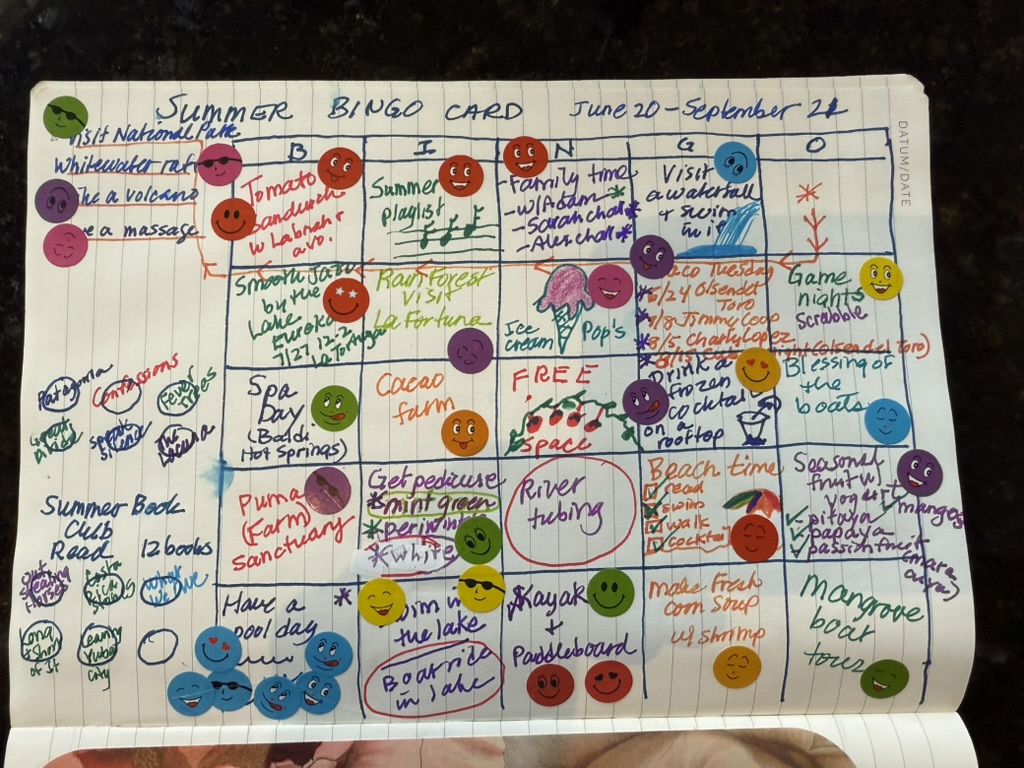 SUMMER BINGO CARD June 20 - September 21
DATUM/DATE
Visit National Park
Whitewater raft
a volcano
a massage
B I N G O
Tomato
Sandwich
w Labnah +
avo.
Summer
playlist
- Family time
- w/Adam *
- Sarah chat *
- Alex chat *
Visit
a waterfall
+ swim
in it
*
Smooth Jazz
by the
Lake
Eureka
7/27 12-2
Rain Forest
Visit
La Fortuna
Ice
cream
Pop's
Taco Tuesday
* 6/24 Olsendel
Toro
* 7/8 Jimmy Coop
* 8/5 Charly Lopez
(Colsendel Toro)
Game
nights
Scrabble
Spa
Day
(Baldi
Hot Springs)
Cacao
farm
FREE
space
Drink a
frozen
cocktail
on a
rooftop
Blessing of
the
boats
Puma
(Farm)
sanctuary
Get pedicure
* mint green
* periwink
* white
River
tubing
Beach time
read
swim
walk
cocktail
Seasonal
fruit w
yogurt
+ mangos
pitaya
papaya
passionfruit
Have a
pool day
*
the lake
Boat ride
in lake
Kayak
+
Paddleboard
Make Fresh
corn soup
w/ shrimp
Mangrove
boat
tour
Patagonia
Confessions
Fever
Great
The
Summer Book
Club
Read 12 books
Out
Stealing
Horses
Costa
Rica
What
We
Long
+ Short
of it
City